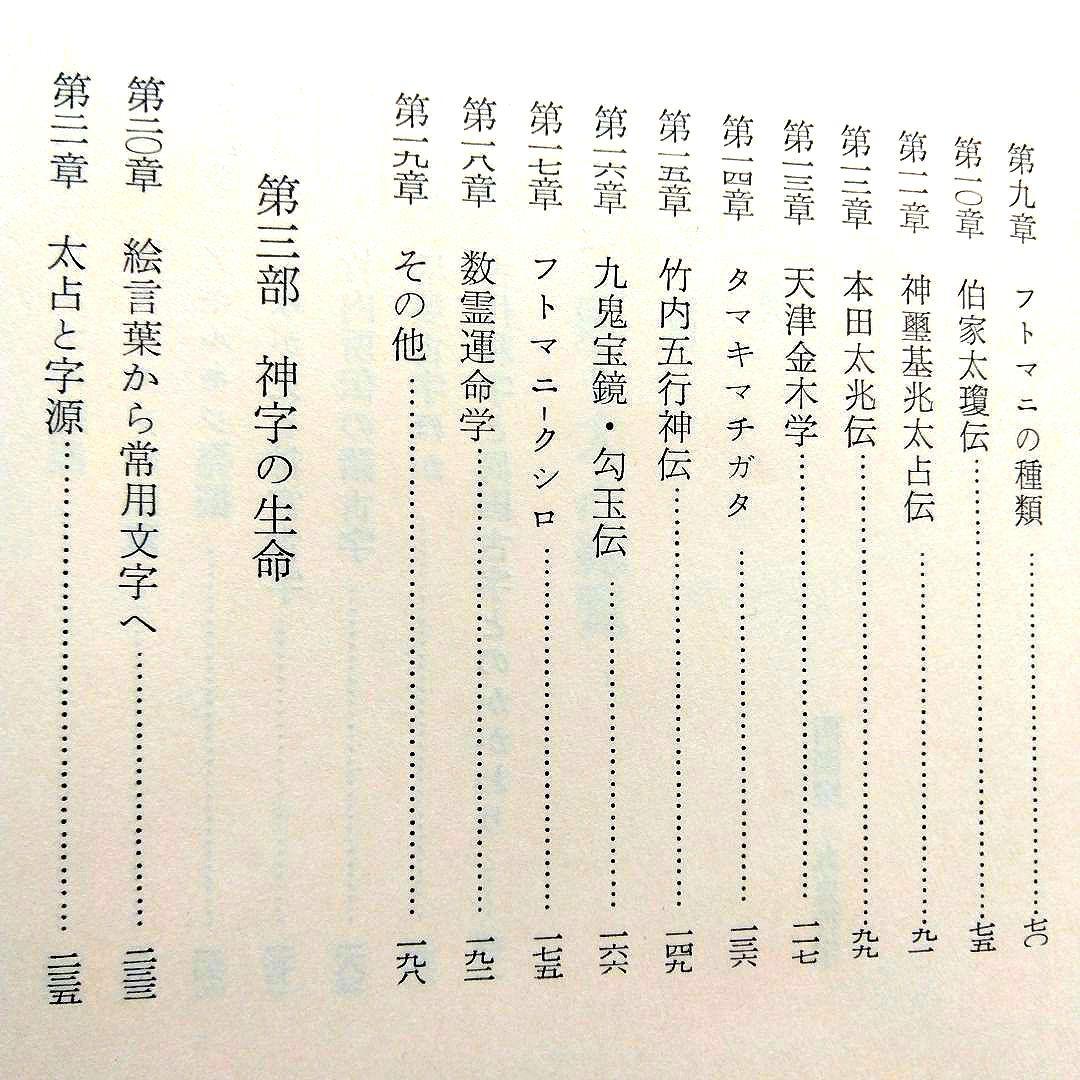 第九章 フトマニの種類……七〇
第一〇章 伯家太瓊伝……七五
第一一章 神璽基兆太占伝……九一
第一二章 本田太兆伝……九九
第一三章 天津金木学……一一七
第一四章 タマキマチガタ……一三六
第一五章 竹内五行神伝……一四九
第一六章 九鬼宝鏡・勾玉伝……一六六
第一七章 フトマニ－クシロ……一七五
第一八章 数霊運命学……一九二
第一九章 その他……一九八
第三部 神字の生命
第二〇章 絵言葉から常用文字へ……二三三
第二一章 太占と字源……二三五